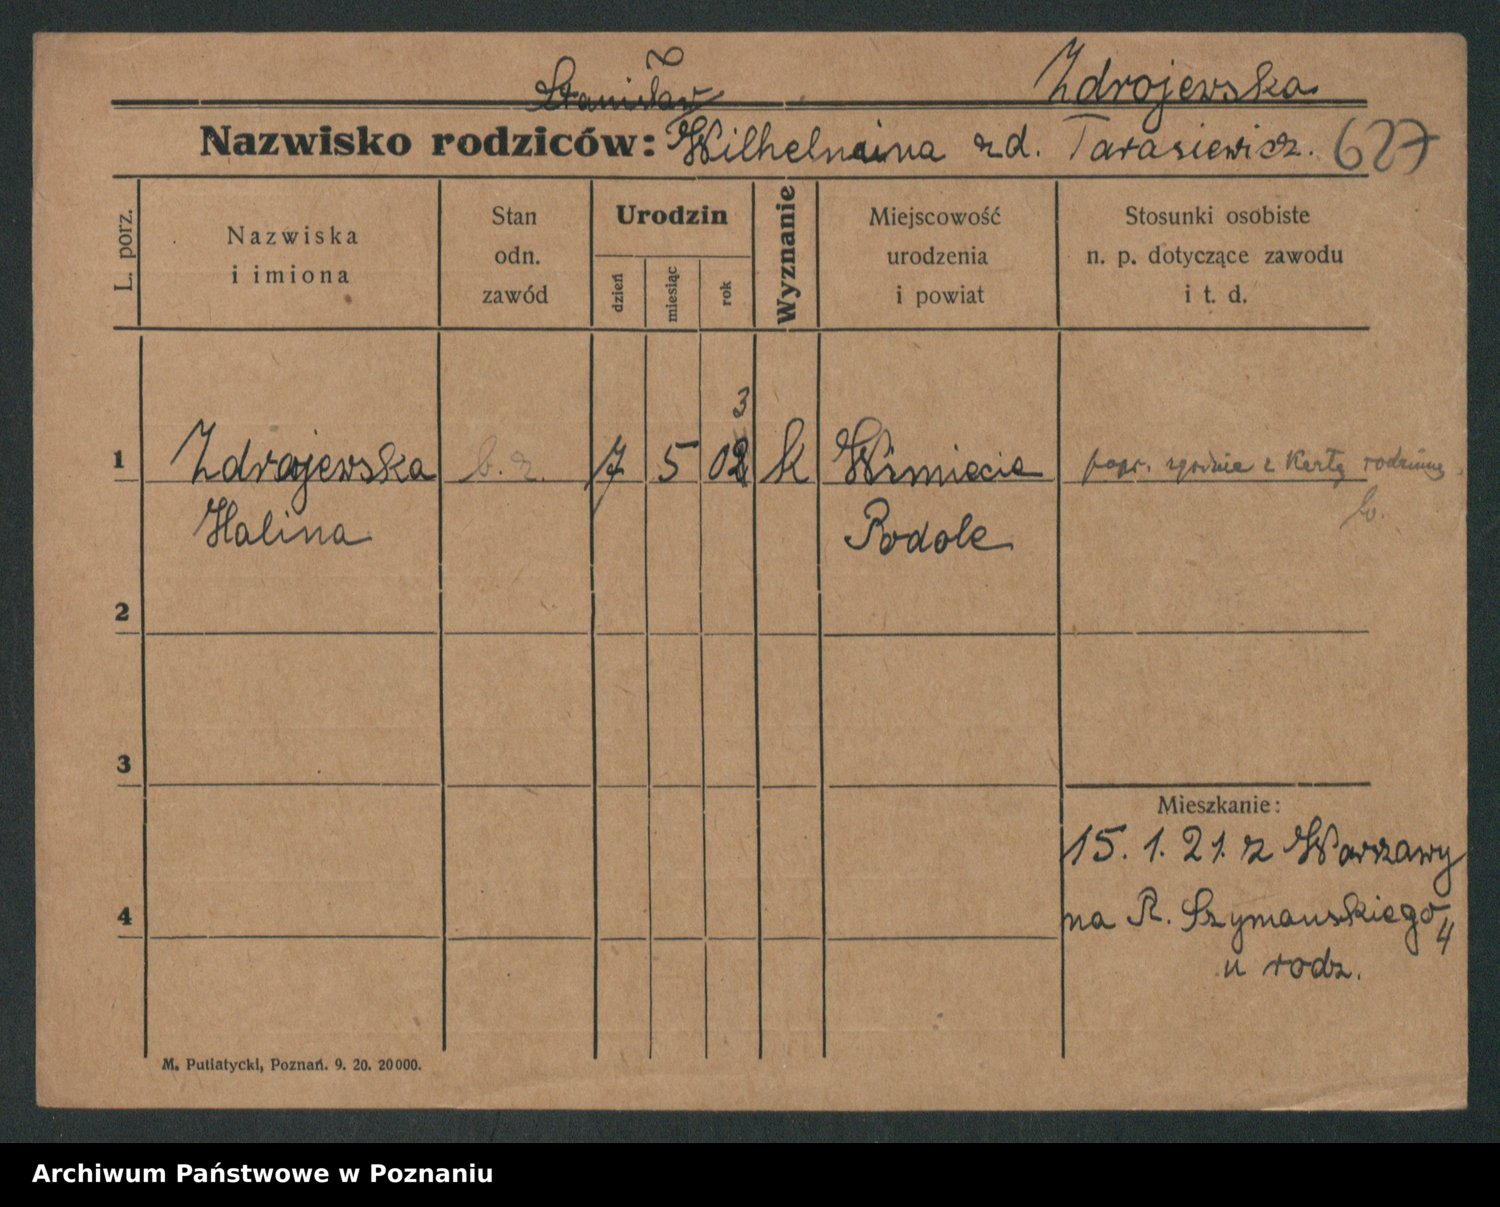 Zdrojewska
Stanisław
Nazwisko rodziców: Wilhelmina zd. Tarasiewicz. 627
L. porz.
Nazwiska
i imiona
Stan
odn.
zawód
Urodzin
dzień
miesiąc
rok
Wyznanie
Miejscowość
urodzenia
i powiat
Stosunki osobiste
n. p. dotyczące zawodu
i t. d.
3
1 Zdrojewska b. z. 7 5 02 k popr. zgodnie z Kartą rodzinną
Halina Podole
2
3
4
Mieszkanie:
15. 1. 21. z Warszawy
na R. Szymańskiego 4
u rodz.
M. Putiatycki, Poznań. 9. 20. 20000.
Archiwum Państwowe w Poznaniu